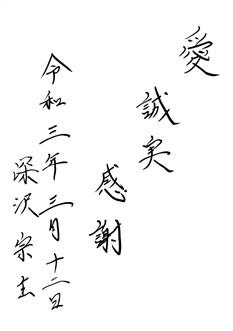 愛
誠実
感謝
令和三年三月十二日
深沢宗圭